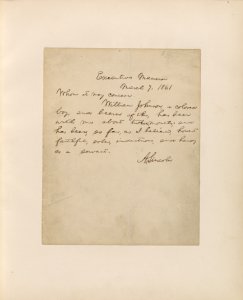 Executive Mansion
March 7, 1861
Whom it may concern
William Johnson, a colored
boy, and bearer of this, has been
with me about twelve months; and
has been, so far, as I believe, honest,
faithful, sober, industrious, and handy
as a servant.
A. Lincoln